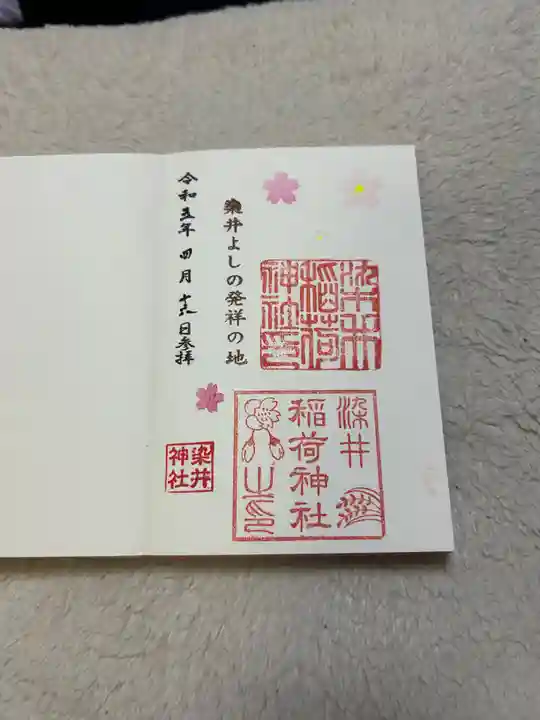 染井よしの発祥の地
令和五年 四月 十六日参拝
染井
稲荷
神社印
染井
稲荷神社
之印
染井
神社